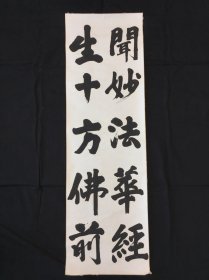 聞妙法華經
生十方佛前